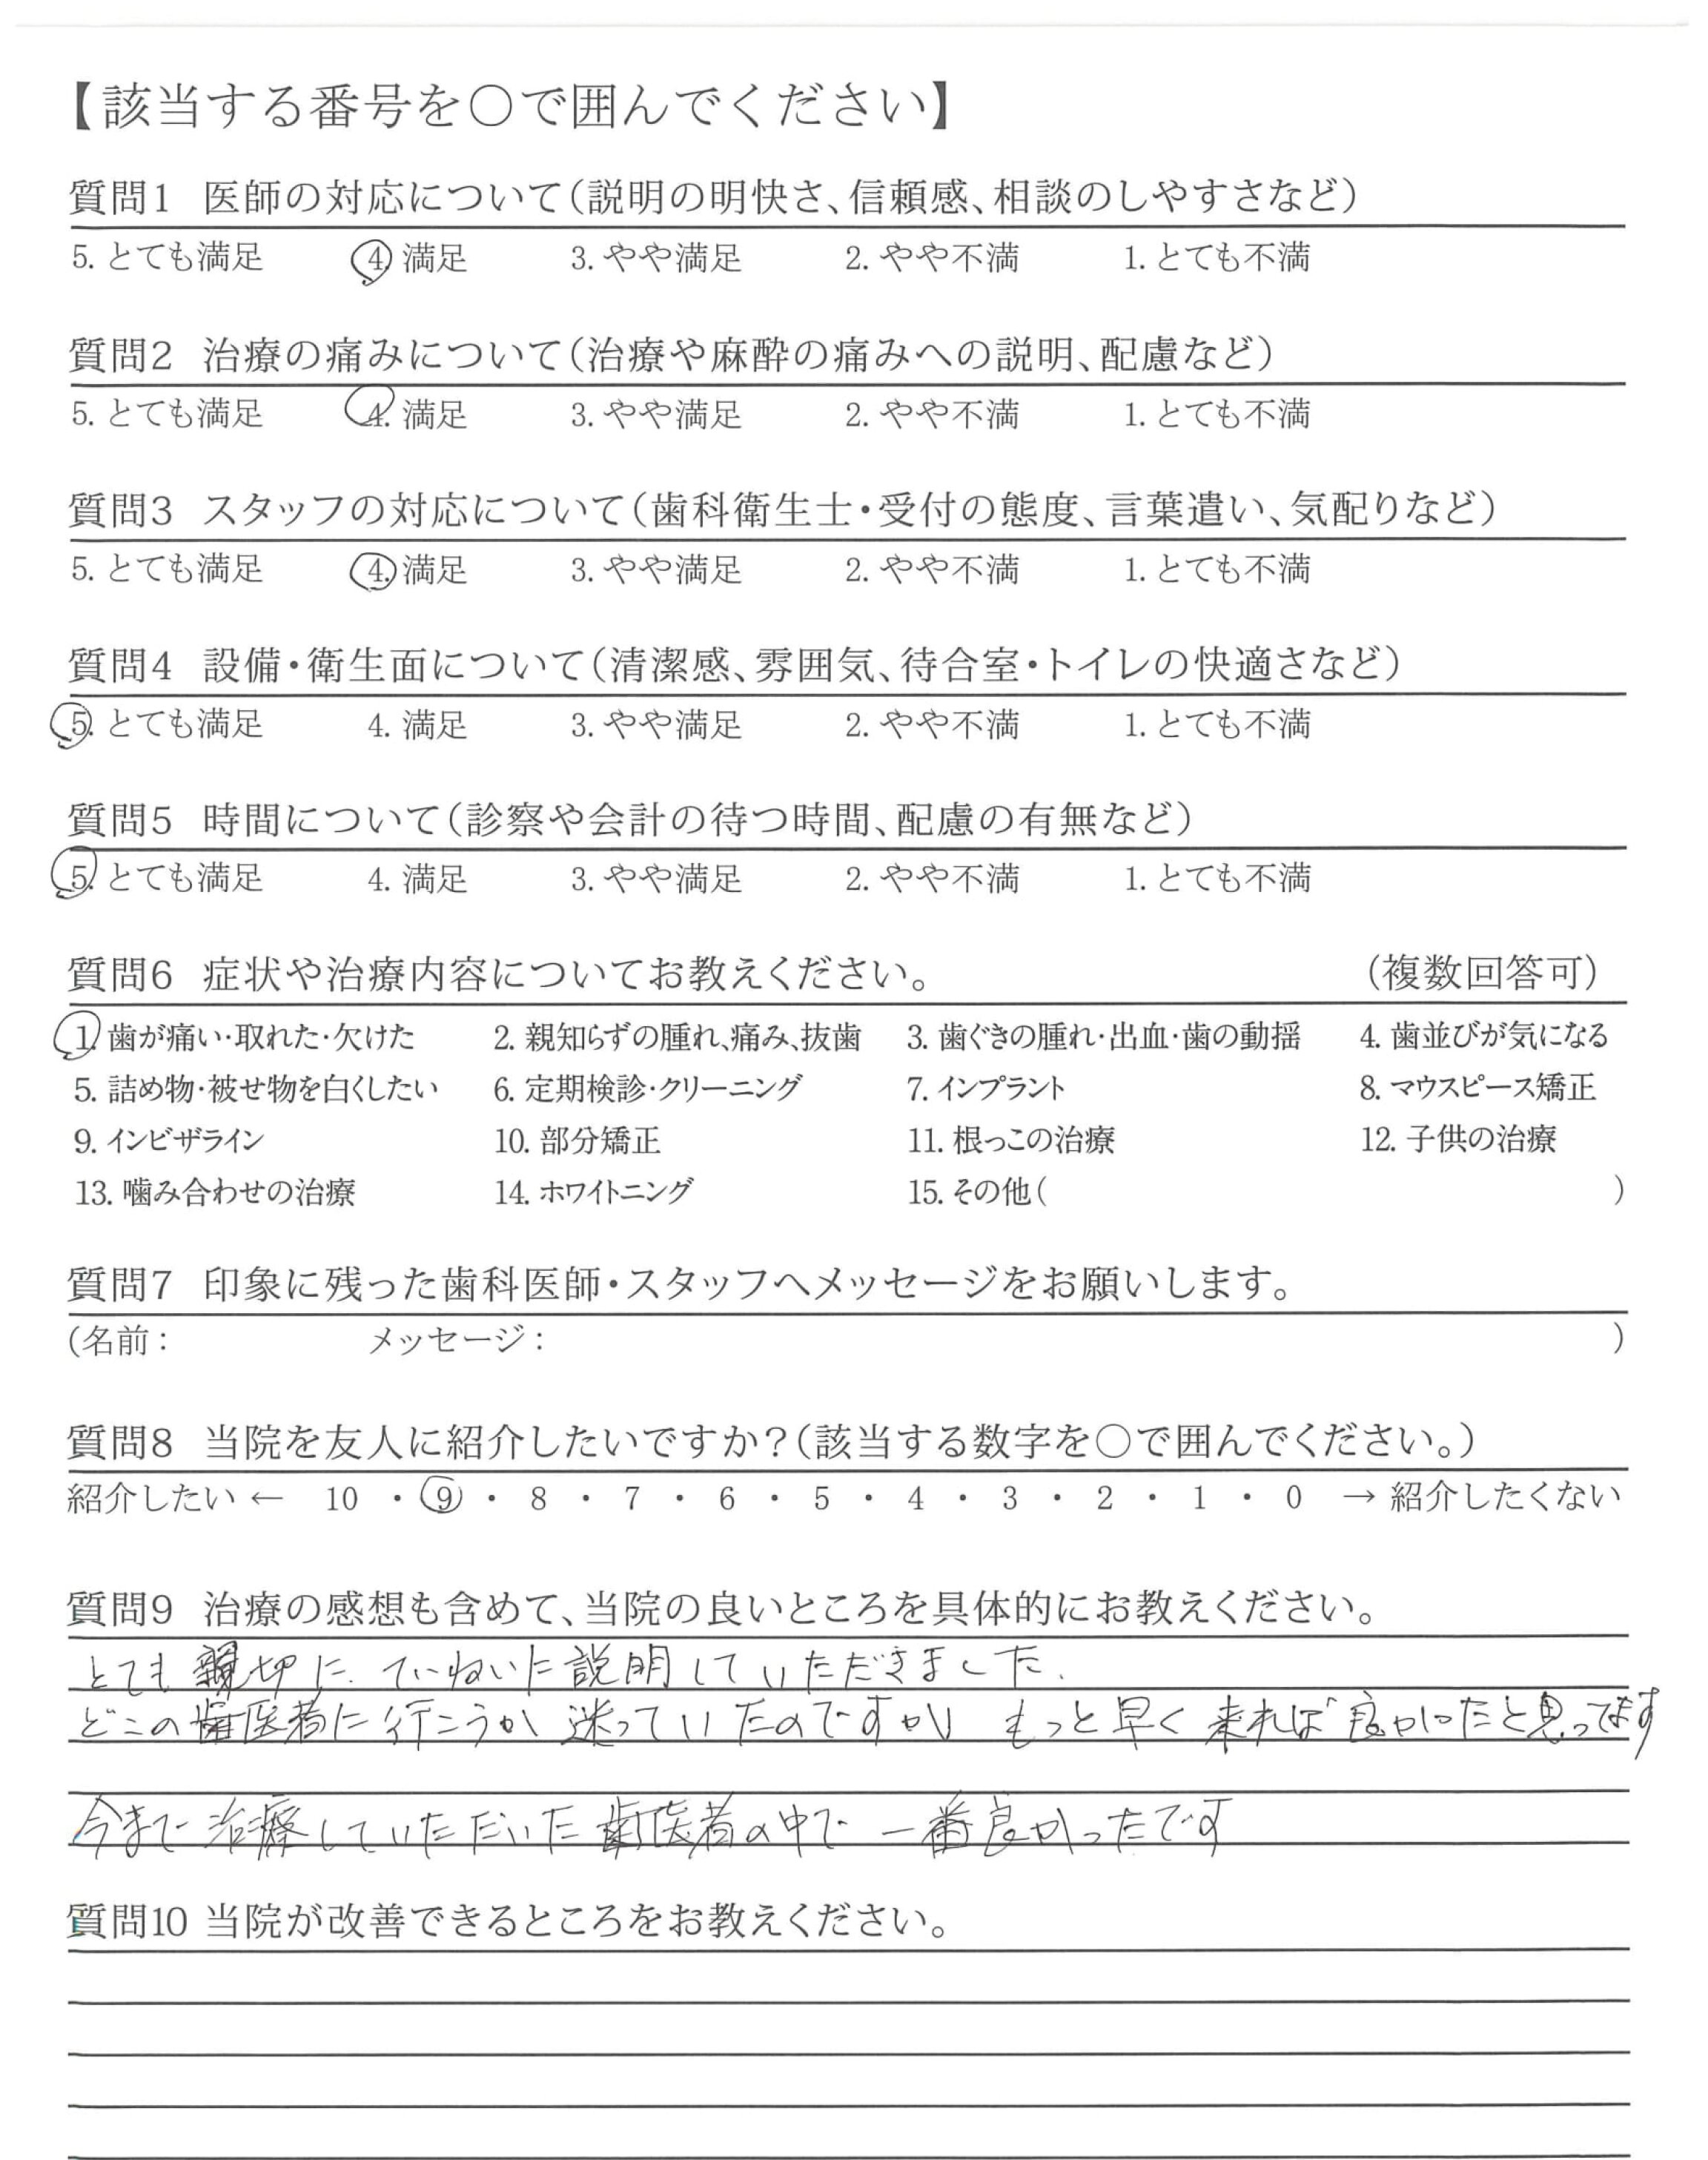 【該当する番号を○で囲んでください】
質問1 医師の対応について(説明の明快さ、信頼感、相談のしやすさなど)
5. とても満足 4. 満足 3. やや満足 2. やや不満 1. とても不満
質問2 治療の痛みについて(治療や麻酔の痛みへの説明、配慮など)
5. とても満足 4. 満足 3. やや満足 2. やや不満 1. とても不満
質問3 スタッフの対応について(歯科衛生士・受付の態度、言葉遣い、気配りなど)
5. とても満足 4. 満足 3. やや満足 2. やや不満 1. とても不満
質問4 設備・衛生面について(清潔感、雰囲気、待合室・トイレの快適さなど)
5. とても満足 4. 満足 3. やや満足 2. やや不満 1. とても不満
質問5 時間について(診察や会計の待つ時間、配慮の有無など)
5. とても満足 4. 満足 3. やや満足 2. やや不満 1. とても不満
質問6 症状や治療内容についてお教えください。 (複数回答可)
1. 歯が痛い・取れた・欠けた 2. 親知らずの腫れ、痛み、抜歯 3. 歯ぐきの腫れ・出血・歯の動揺 4. 歯並びが気になる
5. 詰め物・被せ物を白くしたい 6. 定期検診・クリーニング 7. インプラント 8. マウスピース矯正
9. インビザライン 10. 部分矯正 11. 根っこの治療 12. 子供の治療
13. 噛み合わせの治療 14. ホワイトニング 15. その他( )
質問7 印象に残った歯科医師・スタッフへメッセージをお願いします。
(名前: メッセージ: )
質問8 当院を友人に紹介したいですか?(該当する数字を○で囲んでください。)
紹介したい ← 10 ・ 9 ・ 8 ・ 7 ・ 6 ・ 5 ・ 4 ・ 3 ・ 2 ・ 1 ・ 0 → 紹介したくない
質問9 治療の感想も含めて、当院の良いところを具体的にお教えください。
とても親切に、ていねいに説明していただきました.
どこの歯医者に行こうか迷っていたのですが もっと早く来れば良かったと思ってます
今まで治療していただいた歯医者の中で一番良かったです
質問10 当院が改善できるところをお教えください。